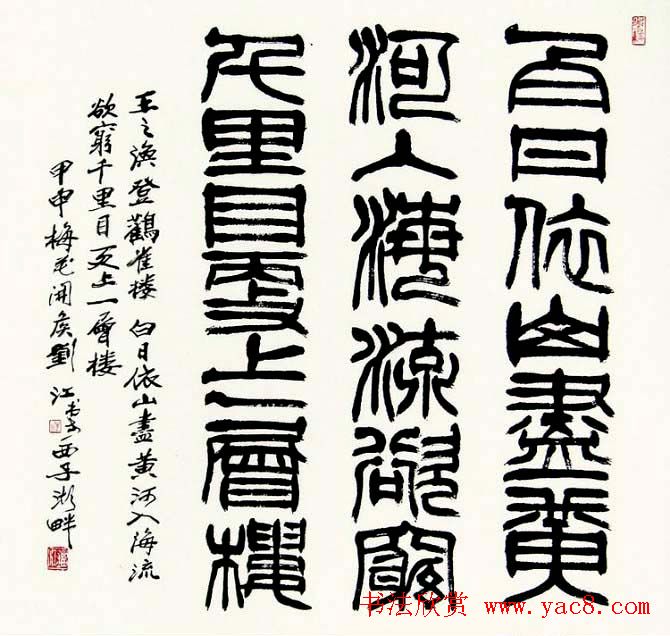 白日依山盡黃
河入海流欲窮
千里目更上一層樓
王之渙登鸛雀楼 白日依山盡黄河入海流
欲窮千里目更上一層楼
甲申梅花開候劉江書于西子湖畔
书法欣赏 www.yac8.com